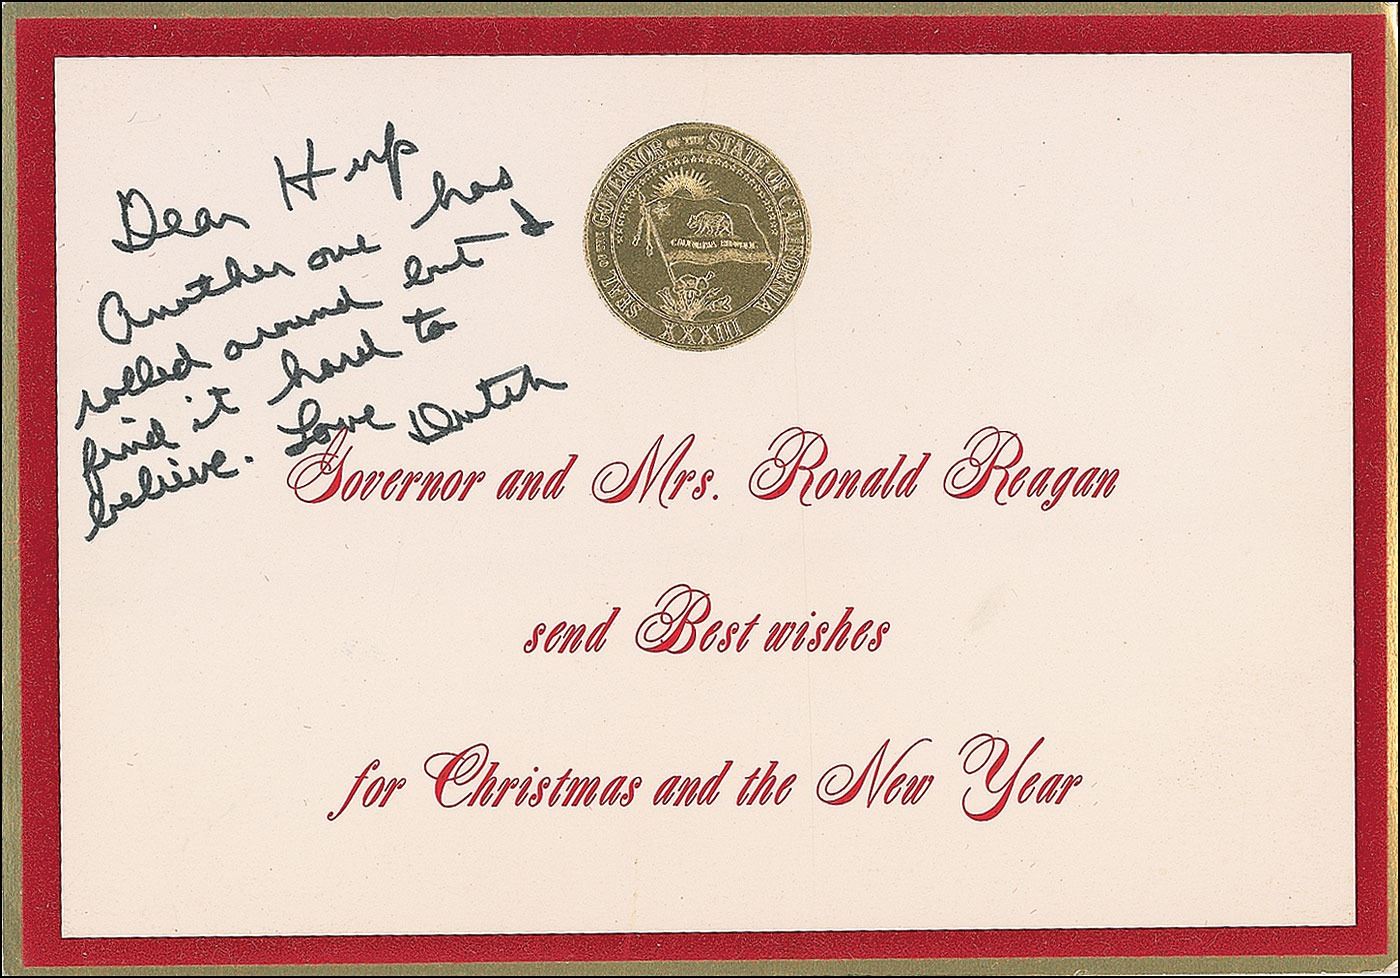 Dear Hup
Another one has
rolled around but I
find it hard to
believe. Love Dutch
SEAL OF THE GOVERNOR OF THE STATE OF CALIFORNIA
CALIFORNIA REPUBLIC
XXXIII
Governor and Mrs. Ronald Reagan
send Best wishes
for Christmas and the New Year